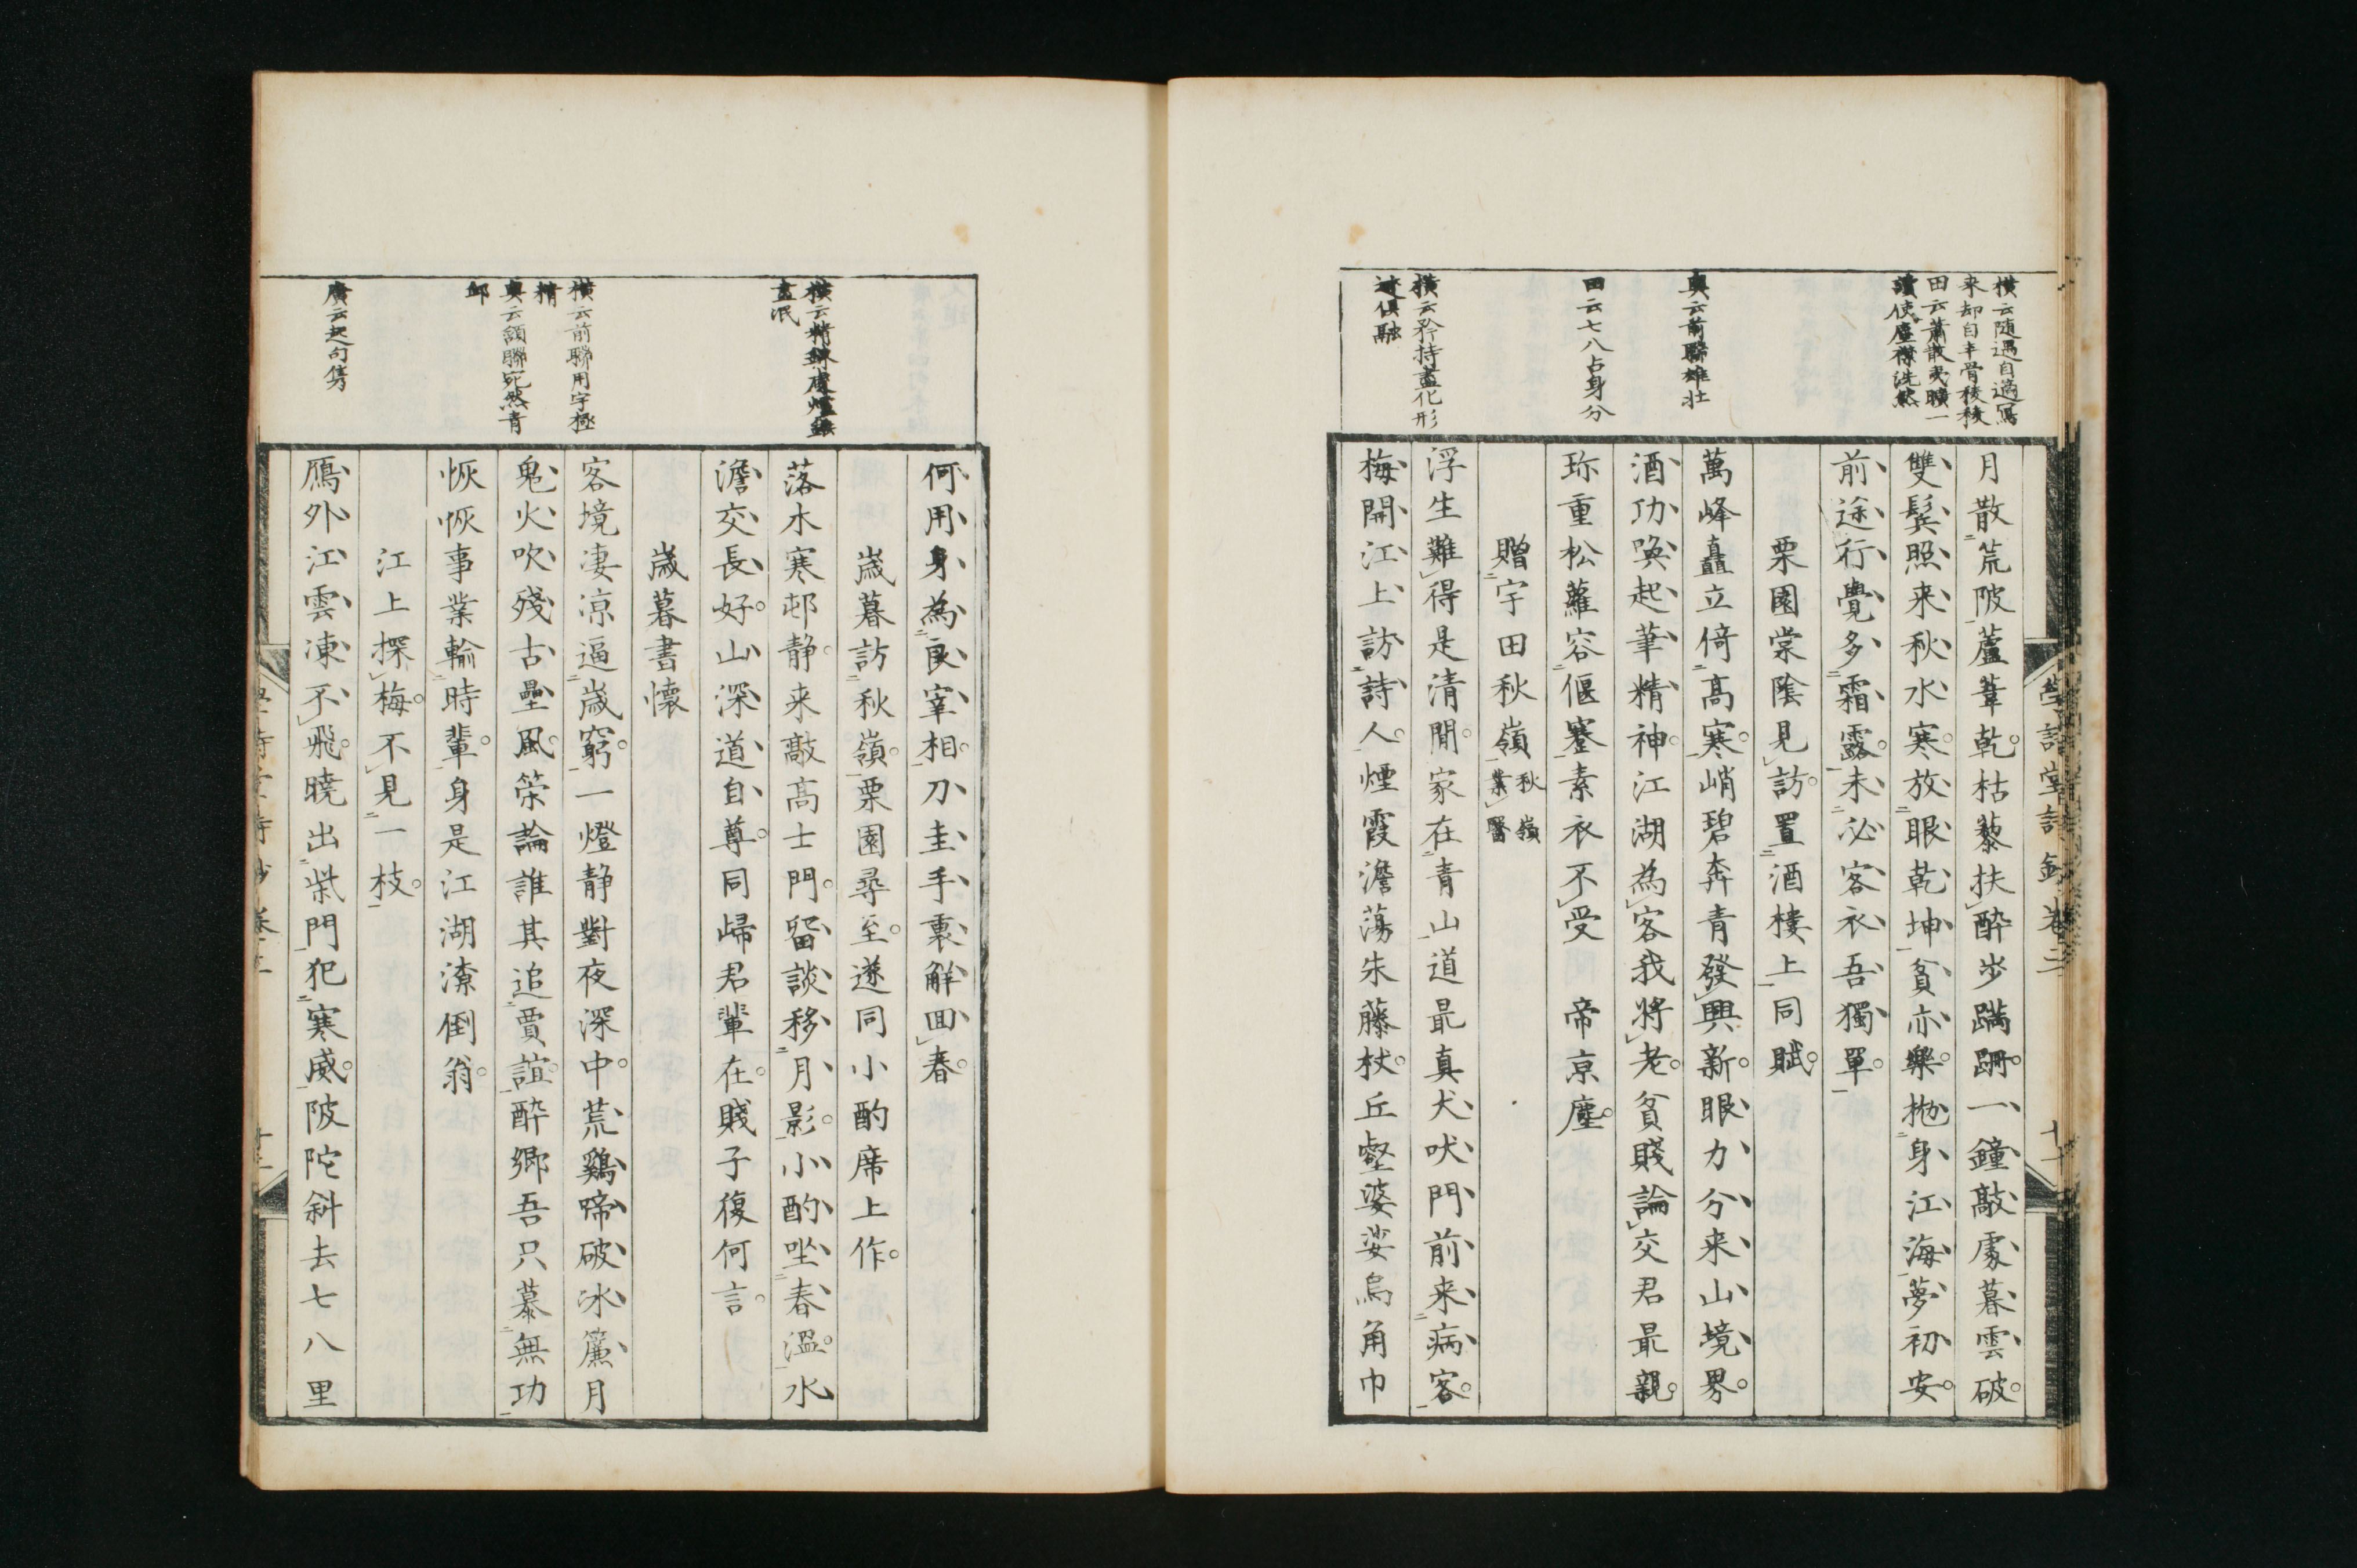 横云随遇自適寫
来却自丰骨稜稜
田云蕭散夷曠一
讀使塵襟洗然
奥云前聯雄壮
田云七八占身分
横云矜持盡化形
迹俱融
月散荒陂蘆葦乾枯藜扶酔歩蹣跚一鐘敲處暮雲破
雙鬂照来秋水寒放眼乾坤貧亦樂抛身江海夢初安
前途行覺多霜露未必客衣吾獨單
栗園棠陰見訪置酒樓上同賦
萬峰矗立倚高寒峭碧奔青發興新眼力分来山境界
酒功喚起筆精神江湖為客我將老貧賤論交君最親
珎重松蘿容偃蹇素衣不受　帝京塵
贈宇田秋嶺秋嶺業醫
浮生難得是清閒家在青山道最真犬吠門前来病客
梅開江上訪詩人煙霞澹蕩朱藤杖丘壑婆娑烏角巾
學詩堂詩鈔卷二
十一
横云精錬處爐錘
盡泯
横云前聯用字極
精
奥云頷聯宛然青
邱
廣云起句儁
何用身為良宰相刀圭手裏觧回春
歳暮訪秋嶺栗園尋至遂同小酌席上作
落木寒邨静来敲高士門留談移月影小酌坐春温水
澹交長好山深道自尊同歸君輩在賤子復何言
歳暮書懷
客境凄凉逼歳窮一燈静對夜深中荒鷄啼破冰簾月
鬼火吹殘古壘風榮論誰其追賈誼酔郷吾只慕無功
恢恢事業輸時輩身是江湖潦倒翁
江上探梅不見一枝
鴈外江雲凍不飛曉出柴門犯寒威陂陀斜去七八里